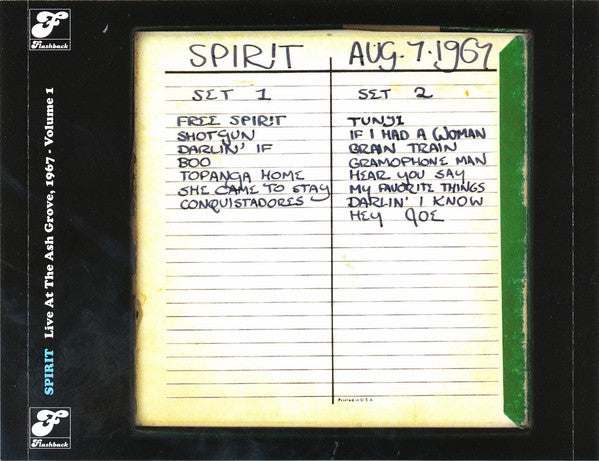 Flashback
SPIRIT Live At The Ash Grove, 1967 - Volume 1
Flashback
SPIRIT AUG. 7. 1967
SET 1
FREE SPIRIT
SHOTGUN
DARLIN' IF
BOO
TOPANGA HOME
SHE CAME TO STAY
CONQUISTADORES
SET 2
TUNJI
IF I HAD A WOMAN
BRAIN TRAIN
GRAMOPHONE MAN
HEAR YOU SAY
MY FAVORITE THINGS
DARLIN' I KNOW
HEY JOE
Printed in U.S.A.